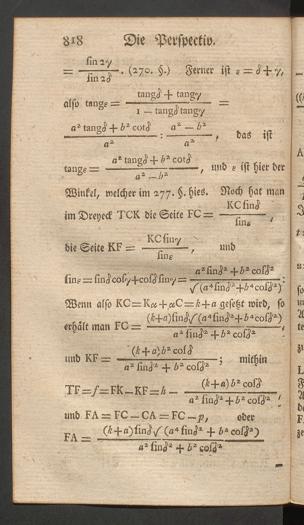 818 Die Perspectiv.
= sin 2γ / sin 2δ . (270. §.) Ferner ist ε = δ + γ,
also tang ε = (tang δ + tang γ) / (1 − tang δ tang γ) =
(a² tang δ + b² cot δ) / a² : (a² − b²) / a² , das ist
tang ε = (a² tang δ + b² cot δ) / (a² − b²) , und ε ist hier der
Winkel, welcher im 277. §. hies. Noch hat man
im Dreyeck TCK die Seite FC = KC sin δ / sin ε ,
die Seite KF = KC sin γ / sin ε , und
sin ε = sin δ cos γ + cos δ sin γ = (a² sin δ² + b² cos δ²) / √(a⁴ sin δ² + b⁴ cos δ²) :
Wenn also KC = Kα + αC = k + a gesetzt wird, so
erhält man FC = (k+a) sin δ √(a⁴ sin δ² + b⁴ cos δ²) / (a² sin δ² + b² cos δ²) ,
und KF = (k+a) b² cos δ / (a² sin δ² + b² cos δ²) ; mithin
TF = f = FK − KF = h − (k+a) b² cos δ / (a² sin δ² + b² cos δ²) ,
und FA = FC − CA = FC − p, oder
FA = (k+a) sin δ √(a⁴ sin δ² + b² cos δ²) / (a² sin δ² + b² cos δ²)
−